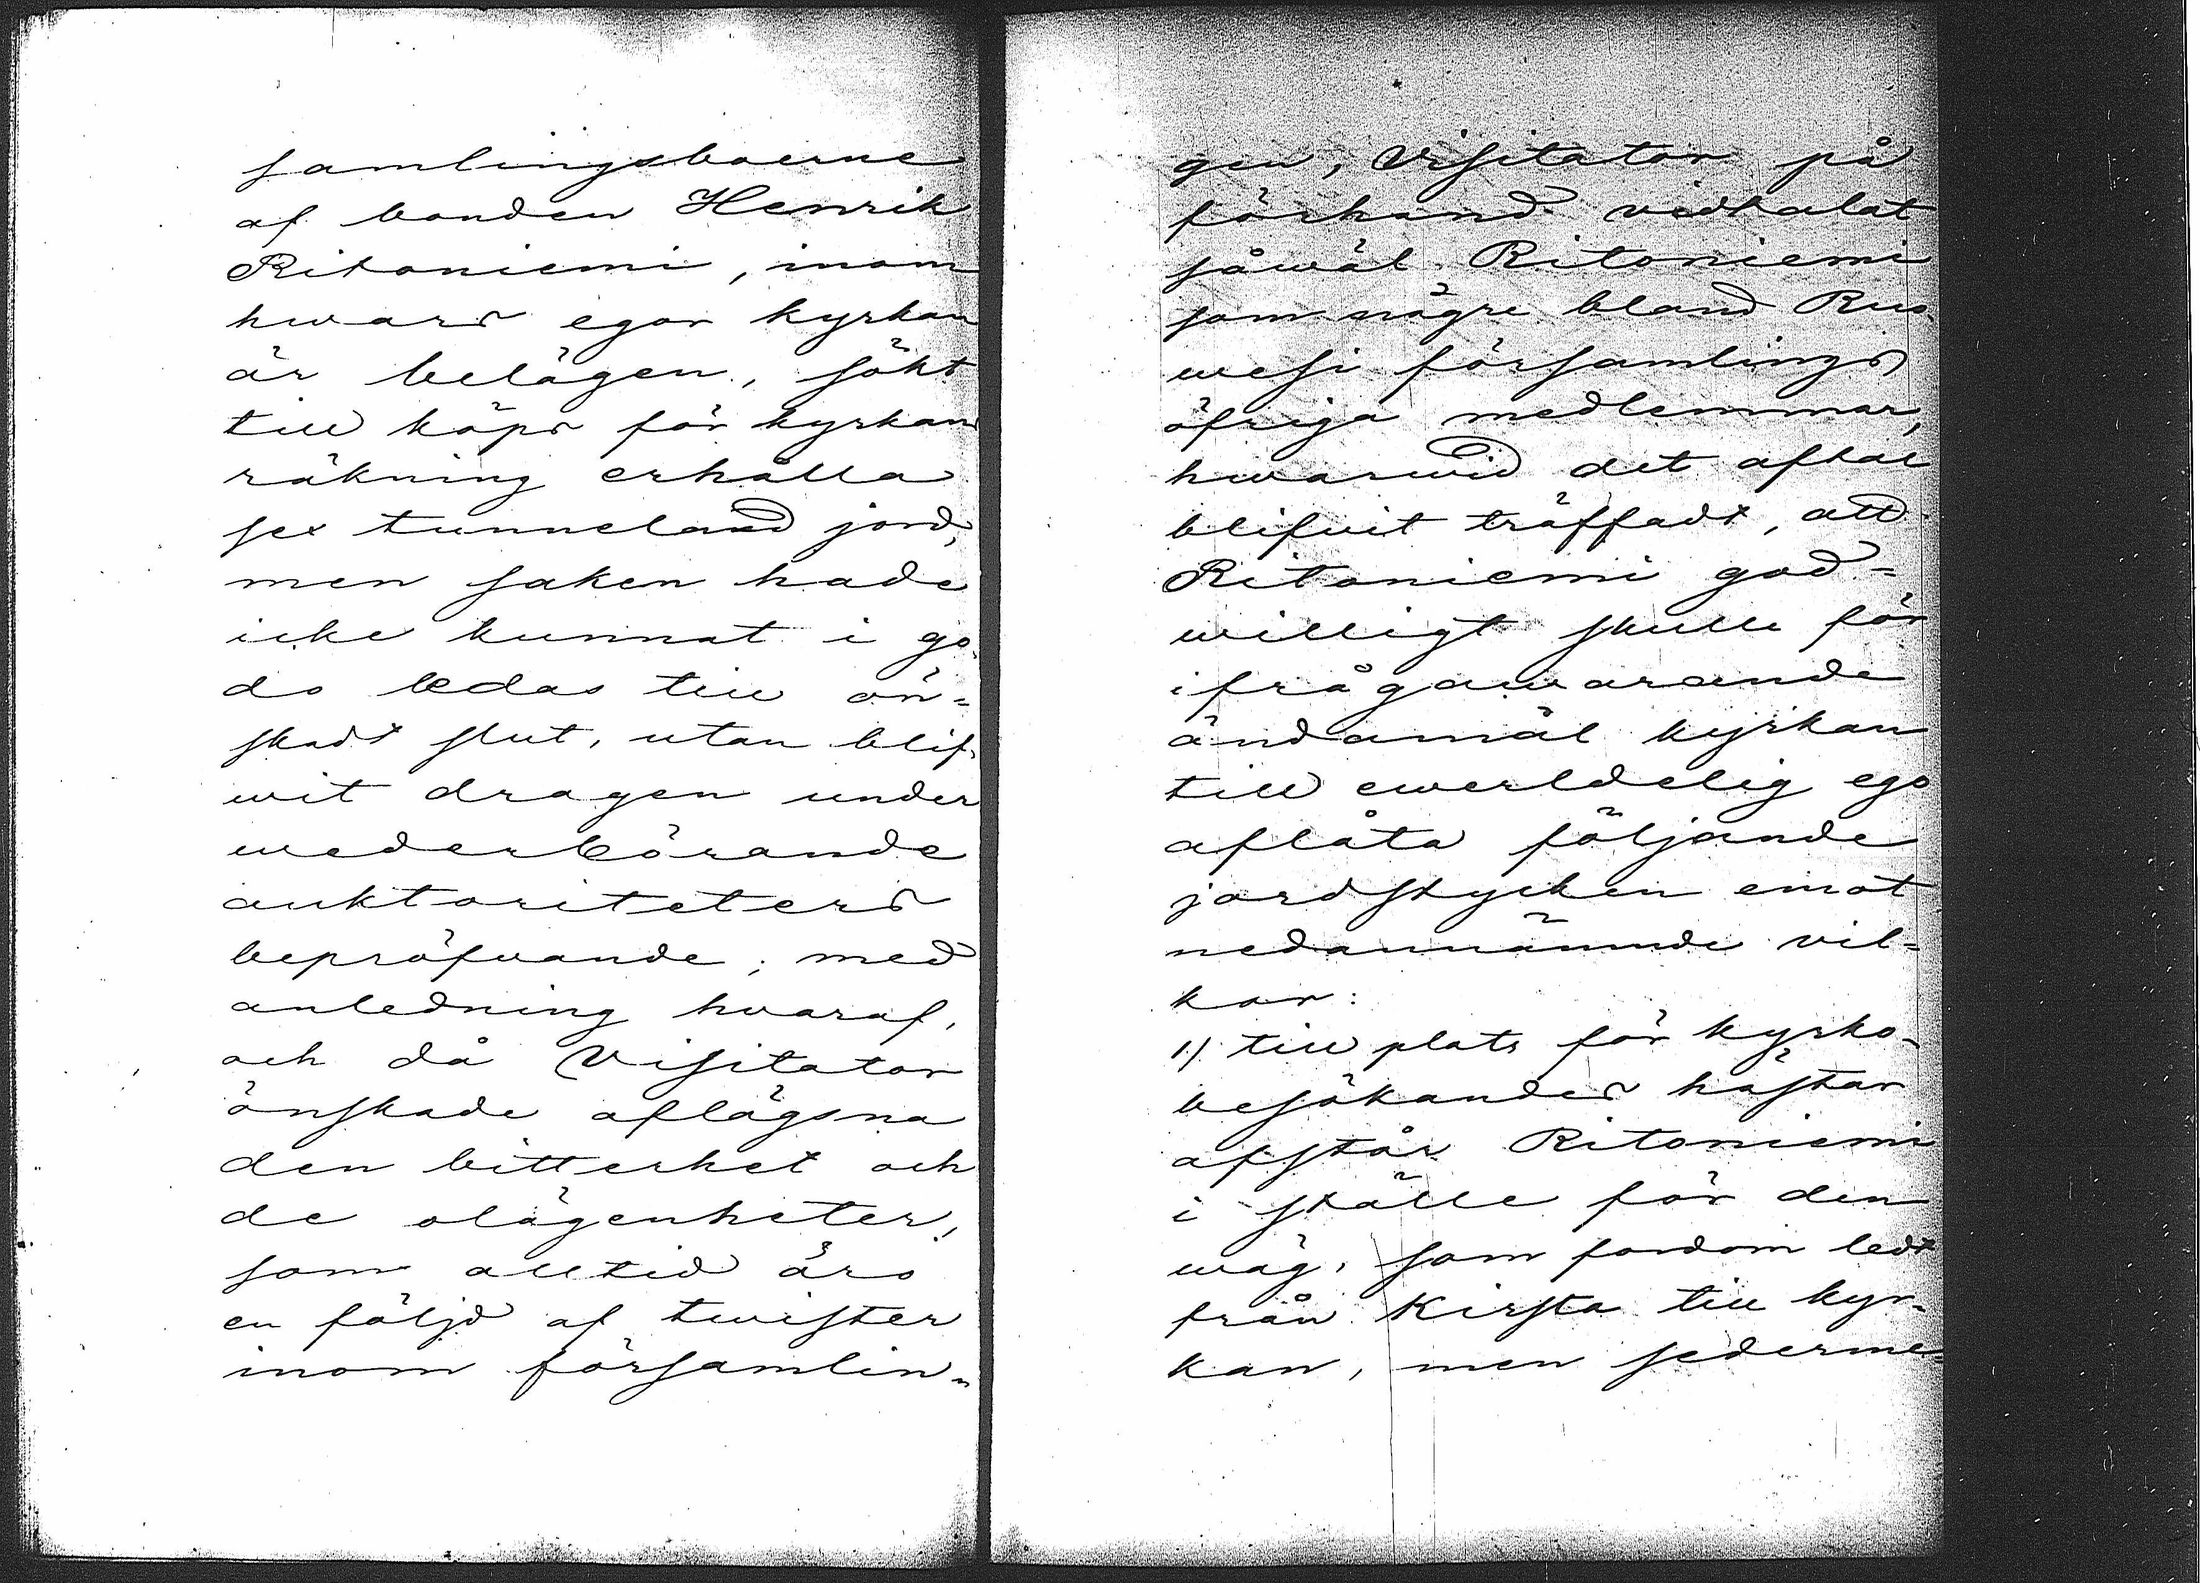 samlingsboerne
af bonden Henrik
Ritoniemi, inom
hwars egor kyrkan
är belägen, sökt
till köps för kyrkans
räkning erhålla
sex tunneland jord,
men saken hade
icke kunnat i go-
do ledas till ön-
skadt slut, utan blif-
wit dragen under
wederbörande
auktoriteters
bepröfvande; med
anledning hvaraf,
och då Visitator
önskade aflägsna
den bitterhet och
de olägenheter,
som alltid äro
en följd af twister
inom församlin-
gen, Visitator på
förhand vidtalat
såwäl Ritoniemi
som någre bland Rus-
wesi församlings
öfriga medlemmar,
hwarwid det aftal
blifvit träffadt, att
Ritoniemi god-
willigt skulle för
ifrågawarande
ändamål kyrkan
till ewerldelig ego
aflåta följande
jordstycken emot
nedannämnde vil-
kor:
1/ till plats för kyrko-
besökandes hästar
afstår Ritoniemi
i ställe för den
wäg, som fordom ledt
från Kirsta till kyr-
kan, men sederme-